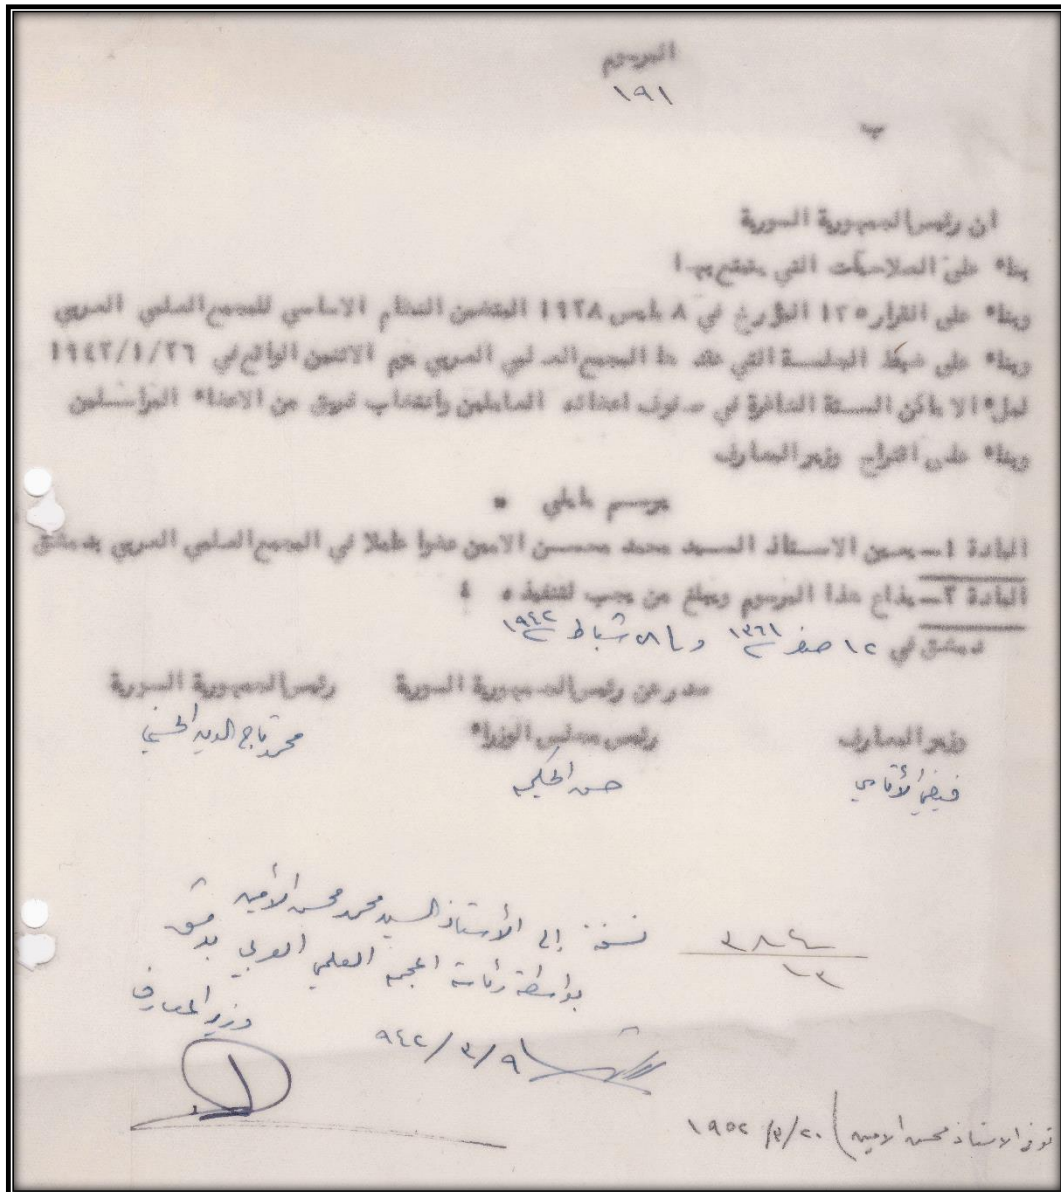 المرسوم
١٩١
ان رئيس الجمهورية السورية
بناء على الصلاحيات التي يتمتع بها
وبناء على القرار ١٣٥ المؤرخ في ٨ مارس ١٩٢٨ المتضمن النظام الاساسي للمجمع العلمي العربي
وبناء على ضبط الجلسة التي عقدها المجمع العلمي العربي يوم الاثنين الواقع في ١٩٤٢/١/٢٦
لملء الاماكن الستة الشاغرة في صفوف اعضائه العاملين وانتخاب فريق من الاعضاء المراسلين
وبناء على اقتراح وزير المعارف
يرسم مايلي
المادة ١ـ يعين الاستاذ السيد محمد محسن الامين عضوا عاملا في المجمع العلمي العربي بدمشق
المادة ٢ـ يذاع هذا المرسوم ويبلغ من يجب لتنفيذه
دمشق في ١٢ صفر ١٣٦١ و ٢٨ شباط ١٩٤٢
صدر عن رئيس الجمهورية السورية رئيس الجمهورية السورية
وزير المعارف رئيس مجلس الوزراء محمد تاج الدين الحسني
فيضي الأتاسي حسن الحكيم
نسخة إلى الأستاذ السيد محمد محسن الأمين
بواسطة رئاسة المجمع العلمي العربي بدمشق
وزير المعارف
٩٤٢/٣/٩
توفي الاستاذ محسن الامين ١٩٥٢/٣/٣٠